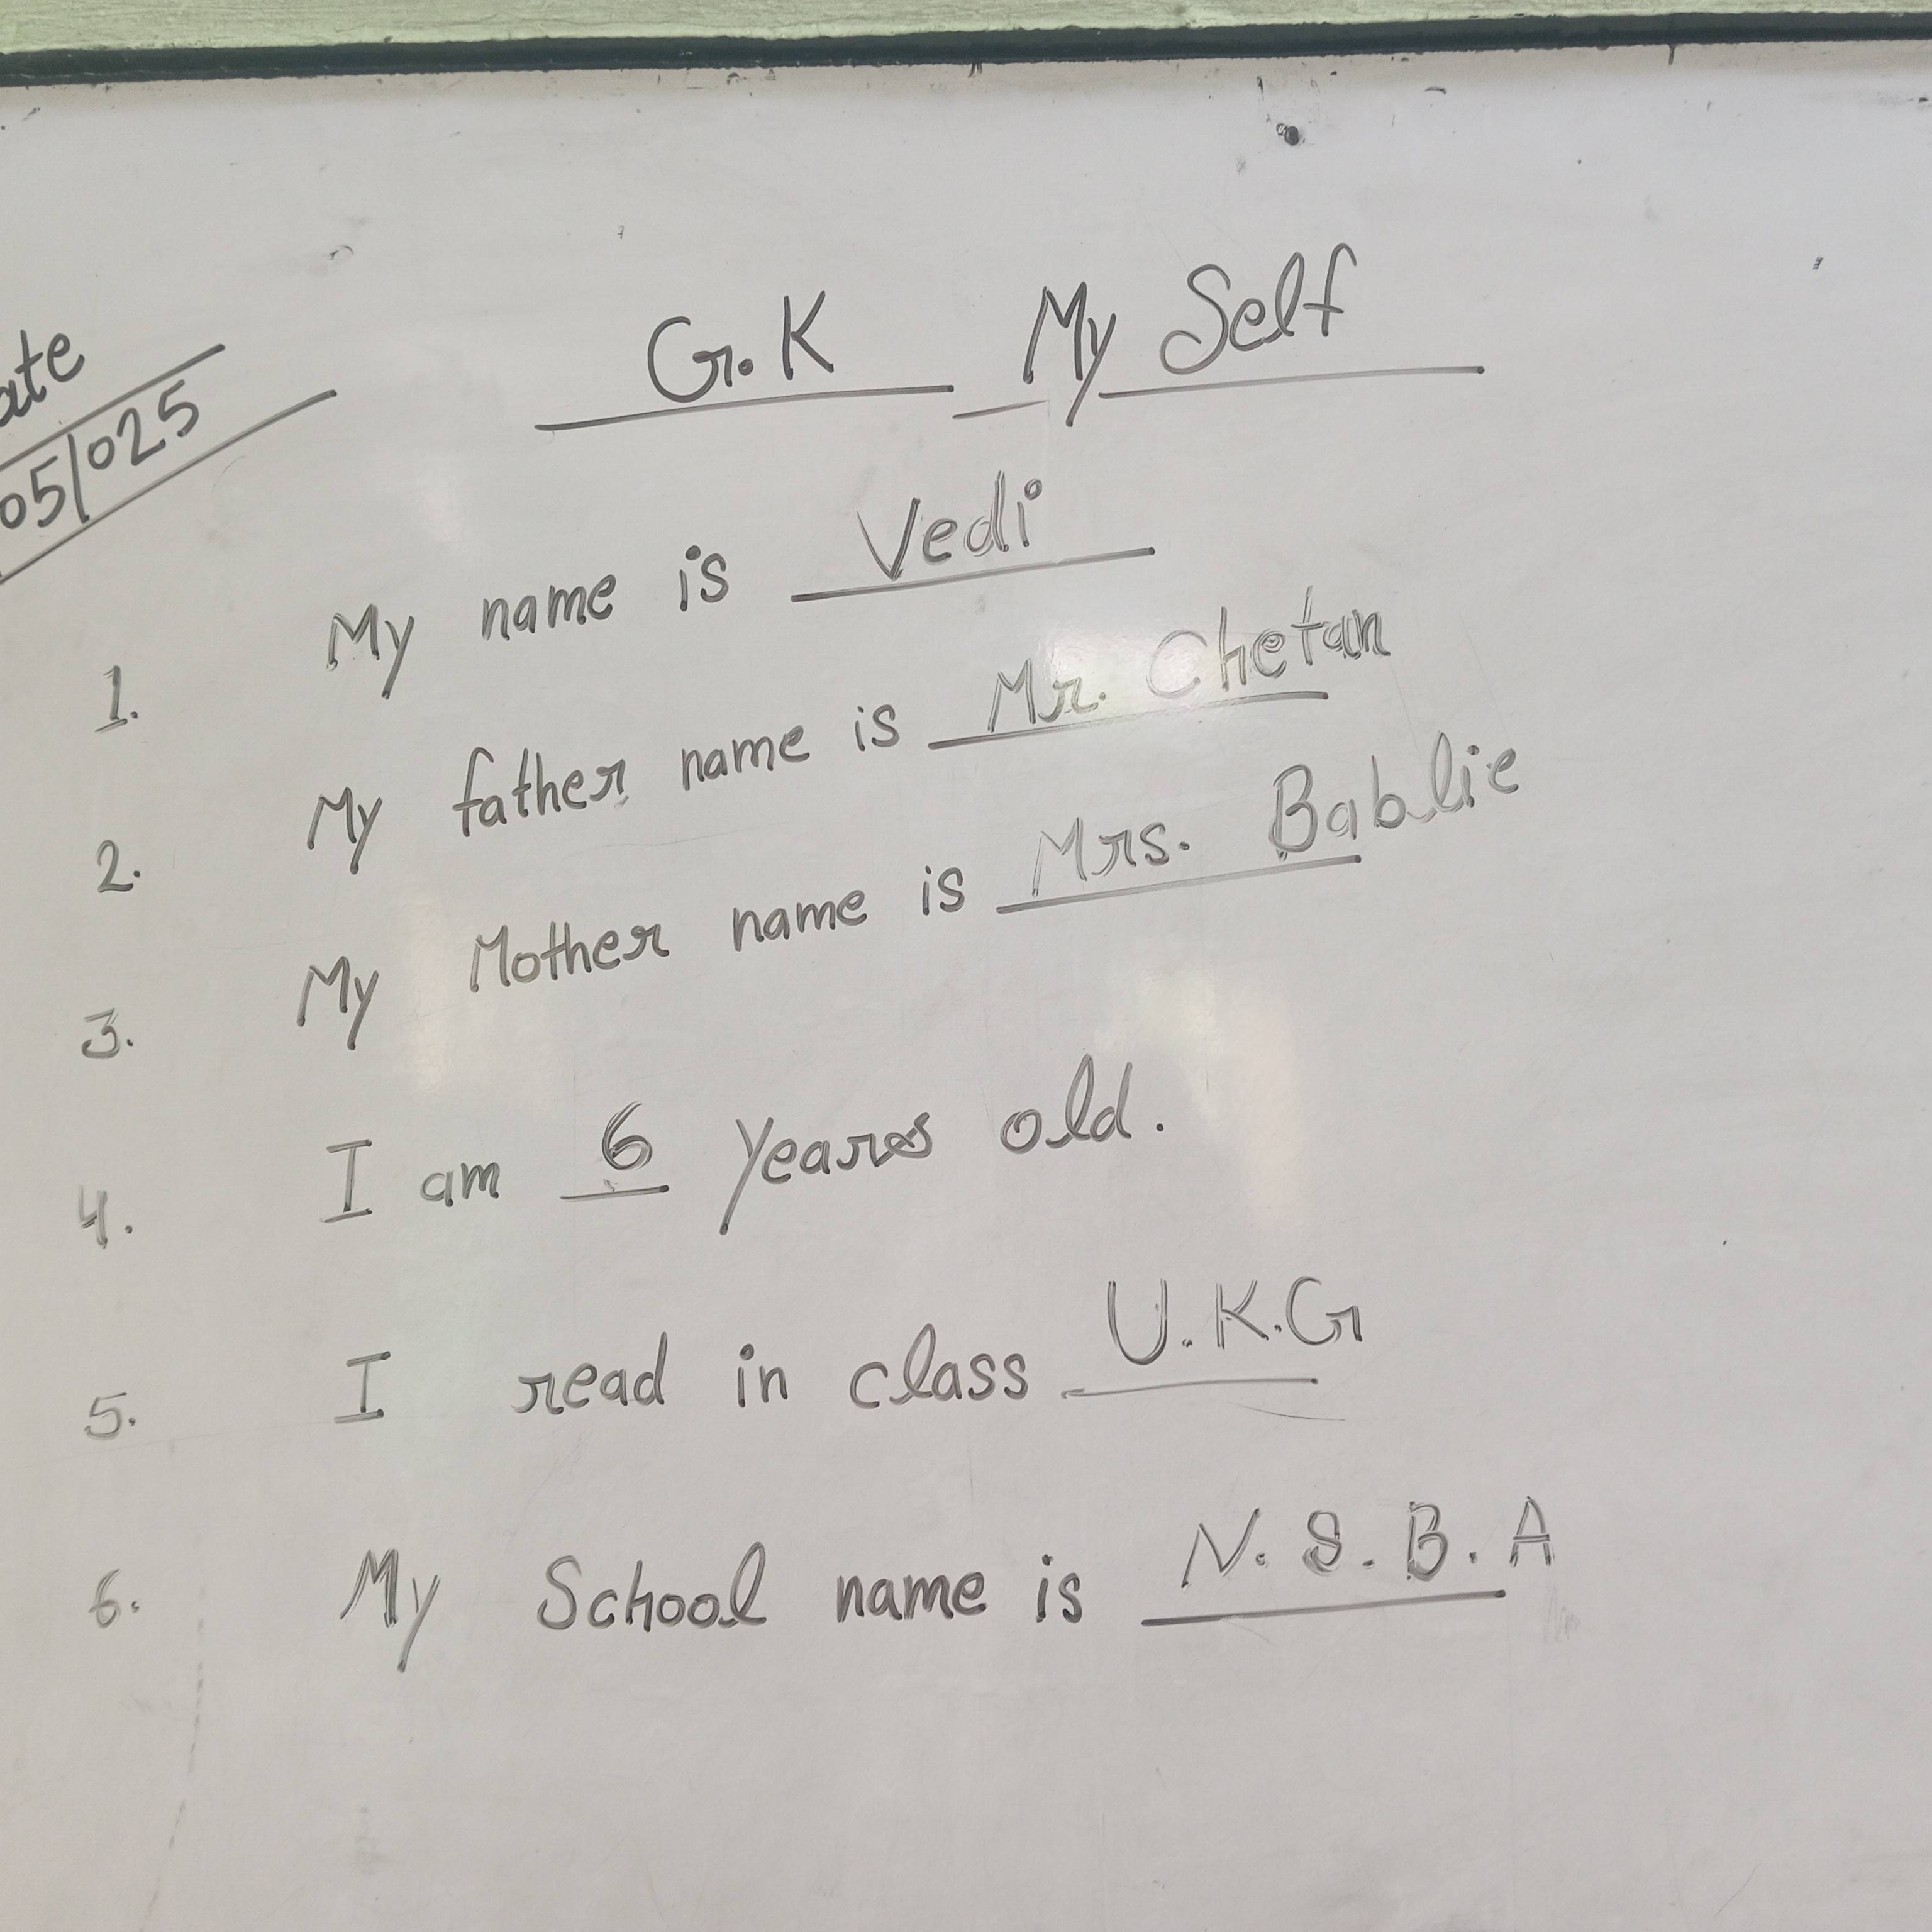 G.K My Self
05/025
1. My name is Vedi
2. My father name is Mr. Chetan
3. My Mother name is Mrs. Bablie
4. I am 6 Years old.
5. I read in class U.K.G
6. My School name is N.S.B.A